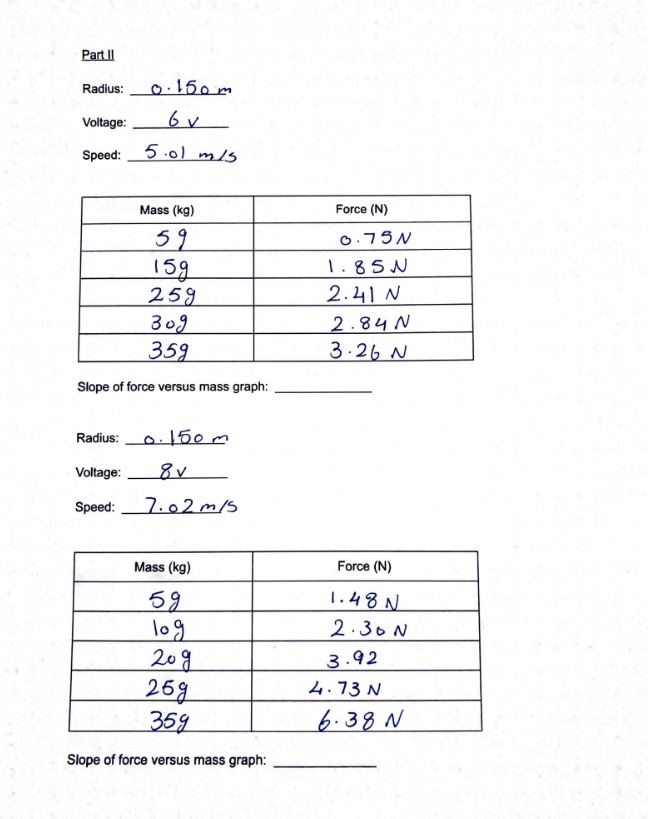 Part II
Radius: 0.150 m
Voltage: 6 v
Speed: 5.01 m/s
Mass (kg) Force (N)
5g 0.75 N
15g 1.85 N
25g 2.41 N
30g 2.84 N
35g 3.26 N
Slope of force versus mass graph:
Radius: 0.150 m
Voltage: 8 v
Speed: 7.02 m/s
Mass (kg) Force (N)
5g 1.48 N
10g 2.30 N
20g 3.92
25g 4.73 N
35g 6.38 N
Slope of force versus mass graph: